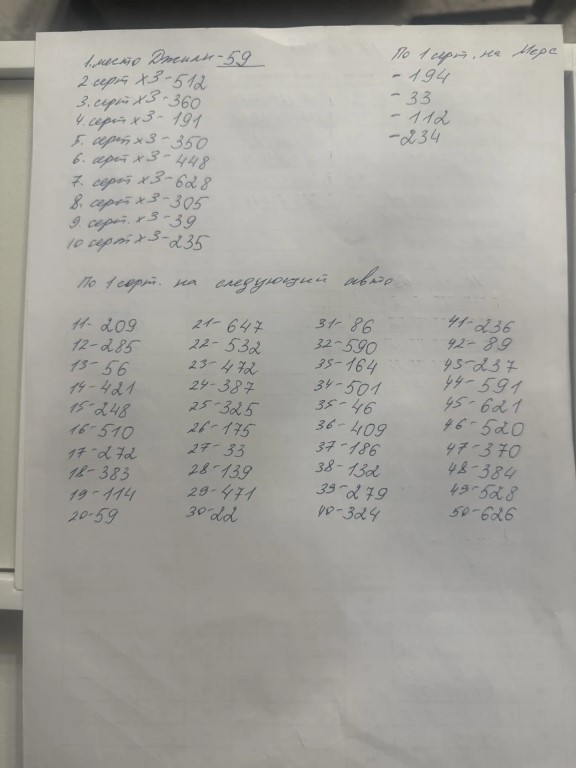 1. место Джили-59
2 серт х3-512
3. серт х3-360
4. серт х3-191
5. серт х3-350
6. серт х3-448
7. серт х3-628
8. серт х3-305
9. серт. х3-39
10 серт х3-235
По 1 серт. на Мерс
- 194
- 33
- 112
-234
По 1 серт. на следующий авто
11-209 21-647 31-86 41-236
12-285 22-532 32-590 42-89
13-56 23-472 35-164 43-237
14-421 24-387 34-501 44-591
15-248 25-325 35-46 45-621
16-510 26-175 36-409 46-520
17-272 27-33 37-186 47-370
18-383 28-139 38-132 48-384
19-114 29-471 39-279 49-528
20-59 30-22 40-324 50-626